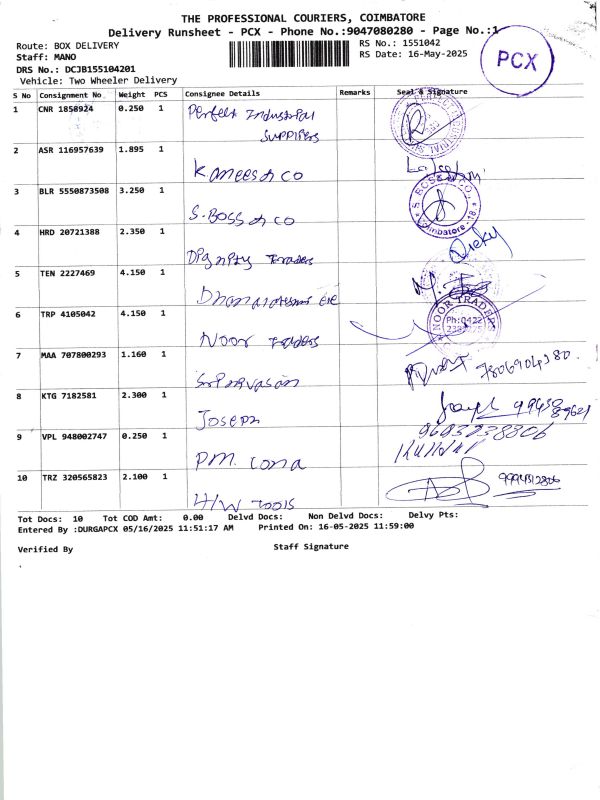 THE PROFESSIONAL COURIERS, COIMBATORE
Delivery Runsheet - PCX - Phone No.:9047080280 - Page No.:1
Route: BOX DELIVERY
RS No.: 1551042
Staff: MANO
RS Date: 16-May-2025
PCX
DRS No.: DCJB155104201
Vehicle: Two Wheeler Delivery
S No Consignment No Weight PCS Consignee Details Remarks Seal & Signature
1 CNR 1858924 0.250 1 Perfect Industrial
Suppliers
2 ASR 116957639 1.895 1
K. Anees & Co
3 BLR 5550873508 3.250 1
S. Boss & Co
S. BOSS & CO.,
Coimbatore - 18
4 HRD 20721388 2.350 1
Dignity Traders
Vicky
5 TEN 2227469 4.150 1
6 TRP 4105042 4.150 1
Noor Traders
NOOR TRADERS
Ph:0422
7 MAA 707800293 1.160 1
Srinivasan
7806904380.
8 KTG 7182581 2.300 1
Joseph
Joseph
9 VPL 948002747 0.250 1
PM.
10 TRZ 320565823 2.100 1
H/W Tools
Tot Docs: 10 Tot COD Amt: 0.00 Delvd Docs: Non Delvd Docs: Delvy Pts:
Entered By :DURGAPCX 05/16/2025 11:51:17 AM Printed On: 16-05-2025 11:59:00
Verified By Staff Signature